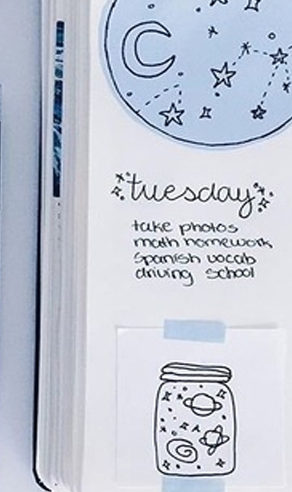 tuesday
take photos
math homework
spanish vocab
driving school